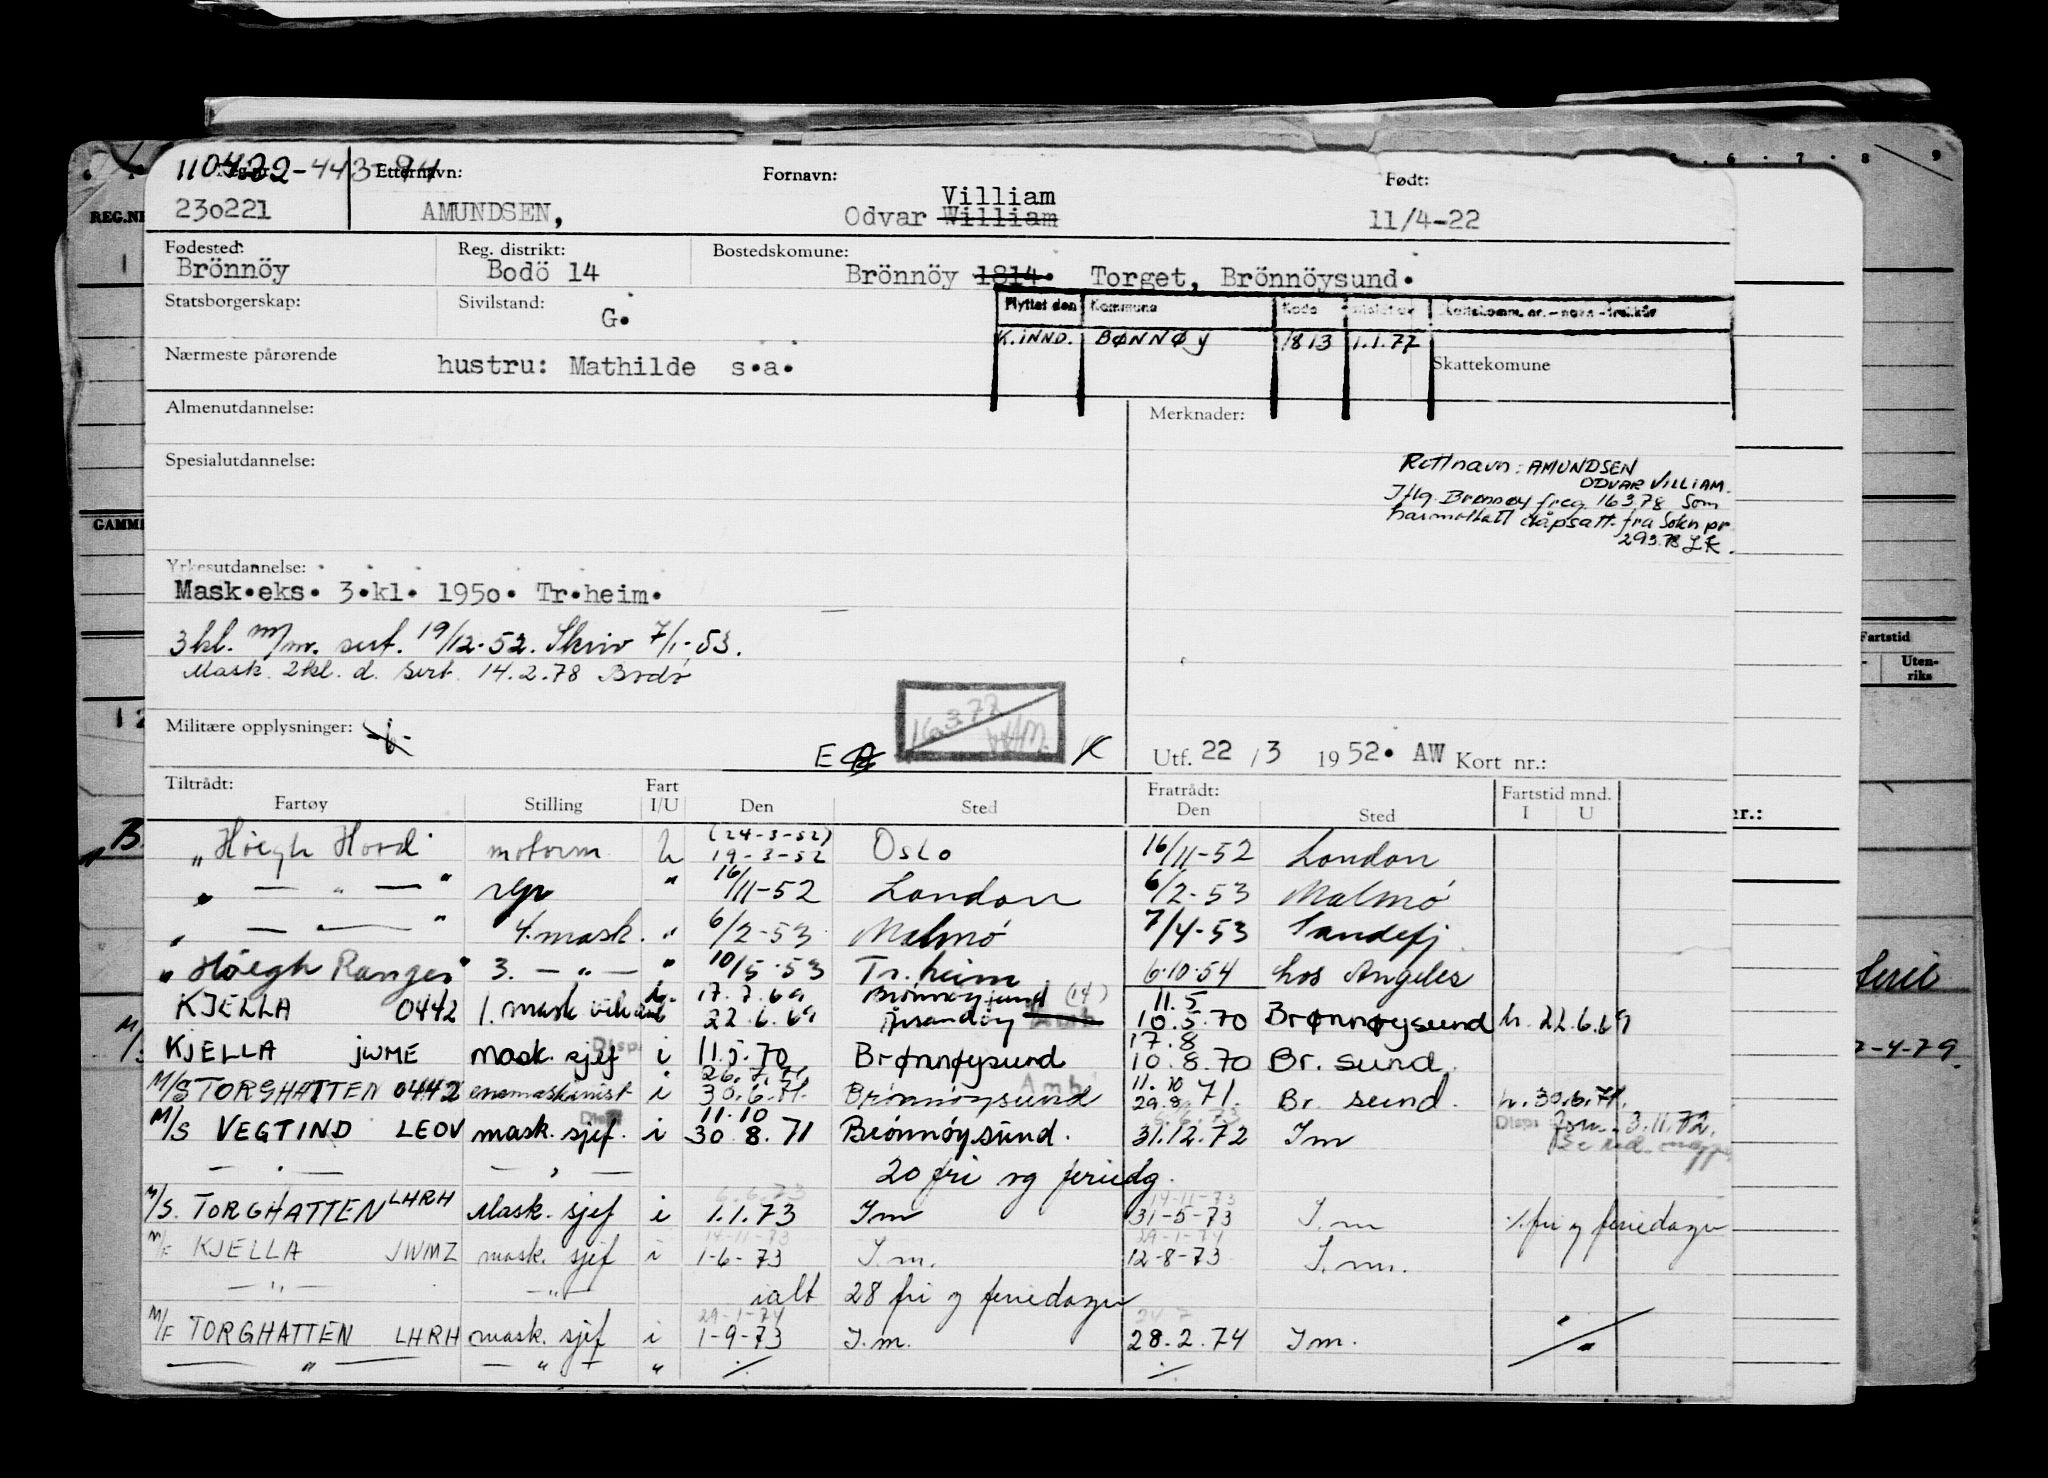 110422-443-94
Reg.nr. Etternavn: Fornavn: Født:
230221 AMUNDSEN, Odvar William Villiam 11/4-22
Fødested: Reg. distrikt: Bostedskomune:
Brönnöy Bodö 14 Brönnöy 1814. Torget, Brönnöysund.
Statsborgerskap: Sivilstand: G.
Flyttet den Kommune Kode
K.INND. BØNNØY 1813 1.1.77
Nærmeste pårørende hustru: Mathilde s.a. Skattekomune
Almenutdannelse: Merknader:
Spesialutdannelse:
Rettnavn: AMUNDSEN
ODVAR VILLIAM.
Iflg. Brønnøy freg 163.78 som
har mottatt dåpsatt. fra Sokn pr
293.78
Yrkesutdannelse:
Mask.eks. 3.kl. 1950. Tr.heim.
3 kl. m/m. sert. 19/12-52. Skriv 7/1-53.
Mask. 2kl. d. sert. 14.2.78 Bodø
Militære opplysninger:
E 16.3.77 K
Utf. 22 / 3 1952. AW Kort nr.:
Tiltrådt: Fart Fratrådt: Fartstid mnd.
Fartøy Stilling I/U Den Sted Den Sted I U
(24-3-52)
"Höegh Hord" motorm U 19-3-52 Oslo 16/11-52 London
" — " — " rep " 16/11-52 London 6/2-53 Malmö
" — " 4. mask. " 6/2-53 Malmö 7/4-53 Sandefj.
"Höegh Ranger" 3. — " — " 10/5-53 Tr.heim 6.10.54 Los Angeles
17.7.69 Brønnøysund (14) 11.5
KJELLA 0442 1. mask vik i 22.6.69 10.5.70 Brønnøysund h. 22.6.69
Disp. 17.8
KJELLA JWME mask. sjef i 11.5.70 Brønnøysund 10.8.70 Br. sund.
26.7.71 Amb. 11.10
M/S TORGHATTEN 0442 enemaskinist i 30.6.71. Brönnöysund 29.8.71. Br. sund. h. 30.6.71.
11.10
M/S VEGTIND LEOV mask. sjef. i 30.8.71 Brönnöysund. 31.12.72 Im 3.11.72.
— " — — " — 20 fri og feriedg.
6.6.73 14-11-73
M/S. TORGHATTEN LHRH Mask. sjef i 1.1.73 Im 31-5-73 I.m ./. fri og feriedager
14-11-73 29-1-74
M/F KJELLA JWMZ mask. sjef i 1-6-73 I.m. 12-8-73 I.m.
— " — — " — ialt 28 fri og feriedager
29-1-74 24.7
M/F TORGHATTEN LHRH mask. sjef i 1-9-73 I.m. 28.2.74 Im.
— " — — " — " ./. ./.
REG.NR
Fartstid
Uten-
riks
ferie